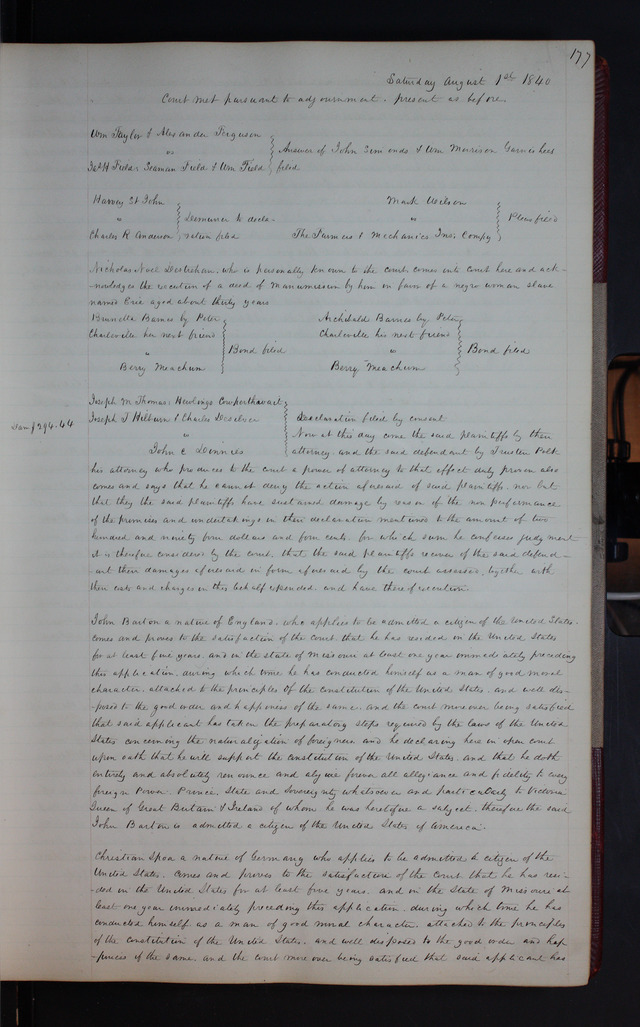 177
Saturday August 1st 1840
Court met pursuant to adjournment. present as before.
Wm Taylor & Alexander Ferguson
vs
Jas H Fields Seaman Field & Wm Field
Answer of John Simonds & Wm Morrison Garnishees
filed
Harvey St John
"
Charles R Anderson
Demurrer to decla-
ration filed
Mark Wilson
"
The Farmers & Mechanics Ins. Compy
Pleas filed
Nicholas Noel Destrehan, who is personally known to the court comes into court here and ack-
nowledges the execution of a deed of manumission by him in favor of a negro woman slave
named Erie aged about thirty years
Brunetta Barnes by Peter
Charleville her next friend
"
Berry Meachum
Bond filed
Archibald Barnes by Peter
Charleville his next friend
"
Berry Meachum
Bond filed
Joseph M Thomas, Hewlings Cowperthwait
Joseph T Hilburn & Charles Desilver
"
John C Dinnies
Dam $294.44
Declaration filed by consent
Now at this day come the said plaintiffs by their
attorney. and the said defendant by Trusten Polk
his attorney who produces to the court a power of attorney to that effect duly proven also
comes and says that he cannot deny the action aforesaid of said plaintiffs. nor but
that they the said plaintiffs have sustained damage by reason of the non performance
of the promises and undertakings in their declaration mentioned to the amount of two
hundred and ninety four dollars and four cents. for which sum he confesses judgment
it is therefore considered by the court. that the said plaintiffs recover of the said defend-
ant their damages aforesaid in form aforesaid by the court assessed, together with
their costs and charges in this behalf expended. and have thereof execution.
John Barton a native of England. who applies to be admitted a citizen of the United States.
comes and proves to the satisfaction of the Court. that he has resided in the United States
for at least five years. and in the state of Missouri at least one year immediately preceding
this application. during which time he has conducted himself as a man of good moral
character. attached to the principles of the constitution of the United States. and well dis-
-posed to the good order and happiness of the same. and the court moreover being satisfied
that said applicant has taken the preparatory steps required by the laws of the United
States concerning the naturalization of foreigners and he declaring here in open court
upon oath that he will support the constitution of the United States. and that he doth
entirely and absolutely renounce and abjure forever all allegiance and fidelity to every
foreign Power. Prince. State and Sovereignty whatsoever and particularly to Victoria
Queen of Great Britain & Ireland of whom he was heretofore a subject. therefore the said
John Barton is admitted a citizen of the United States of America.
Christian Spoa a native of Germany who applies to be admitted a citizen of the
United States. comes and proves to the satisfaction of the Court that he has resi-
-ded in the United States for at least five years. and in the State of Missouri at
least one year immediately preceding this application. during which time he has
conducted himself as a man of good moral character. attached to the principles
of the constitution of the United States. and well disposed to the good order and hap-
-piness of the same. and the court moreover being satisfied that said applicant has